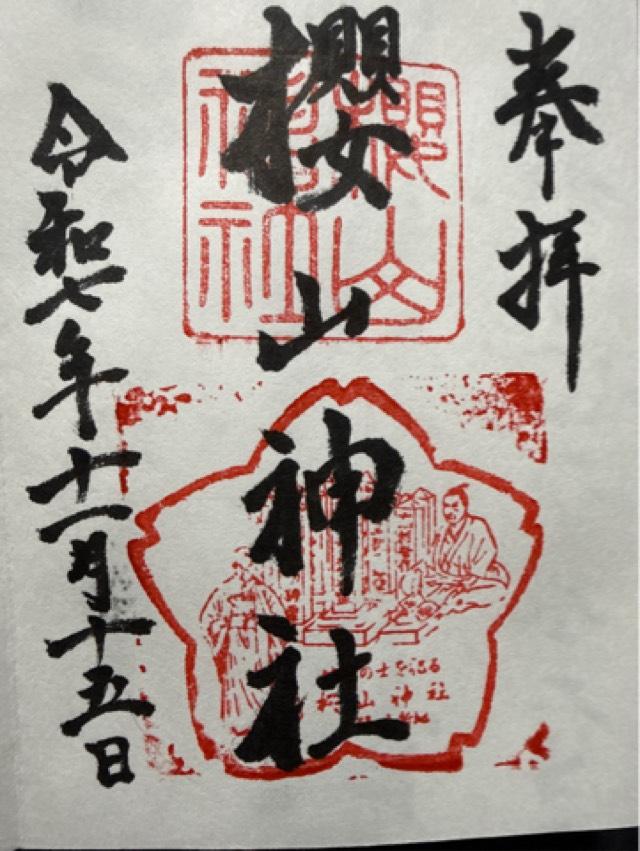 奉拝
櫻山神社
令和七年十一月十五日
櫻山神社
の士を祀る
山神社